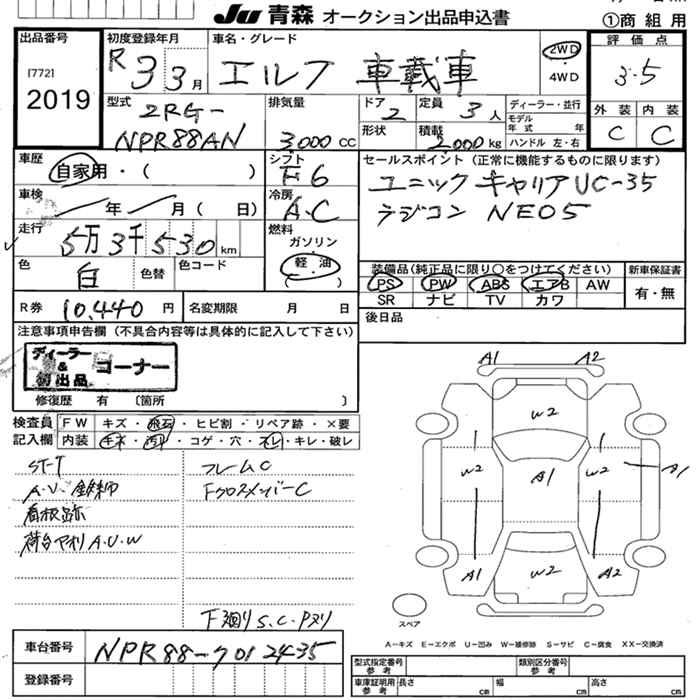 JU 青森 オークション出品申込書
①商組用
出品番号
[772]
2019
初度登録年月
R 3 3月
車名・グレード
エルフ 車載車
2WD
4WD
評価点
3.5
外装 内装
C C
型式
2RG-
NPR88AN
排気量
3,000 CC
ドア
2
定員
3人
形状
積載
2,000 kg
ディーラー・並行
モデル
年式 年
ハンドル 左・右
車歴
自家用・( )
シフト
F6
セールスポイント(正常に機能するものに限ります)
ユニック キャリア UC-35
ラジコン NEO5
車検
年 月( 日)
冷房
A.C
走行
5万3千530km
燃料
ガソリン
軽油
( )
色
白
色替
色コード
装備品(純正品に限り○をつけてください)
新車保証書
PS PW ABS エアB AW
SR ナビ TV カワ
有・無
R券 10,440円
名変期限 月 日
後日品
注意事項申告欄(不具合内容等は具体的に記入して下さい)
ディーラー
&
初出品
コーナー
修復歴 有 〔箇所 〕
検査員
記入欄
FW キズ・飛石・ヒビ割・リペア跡・×要
内装 キズ・汚れ・コゲ・穴・スレ・キレ・破レ
ST-T
A.U.
看板跡
荷台アオリ A.U.W
フレームC
FクロスメンバーC
下廻りS.C.Pヌリ
A1 A2
W2
W2 A1 W2 A1
A1 W2 A2
スペア
A−キズ E−エクボ U−凹み W−補修跡 S−サビ C−腐食 XX−交換済
車台番号
NPR88-7012435
登録番号
型式指定番号
参考
類別区分番号
参考
車庫証明用
参考
長さ cm
幅 cm
高さ cm